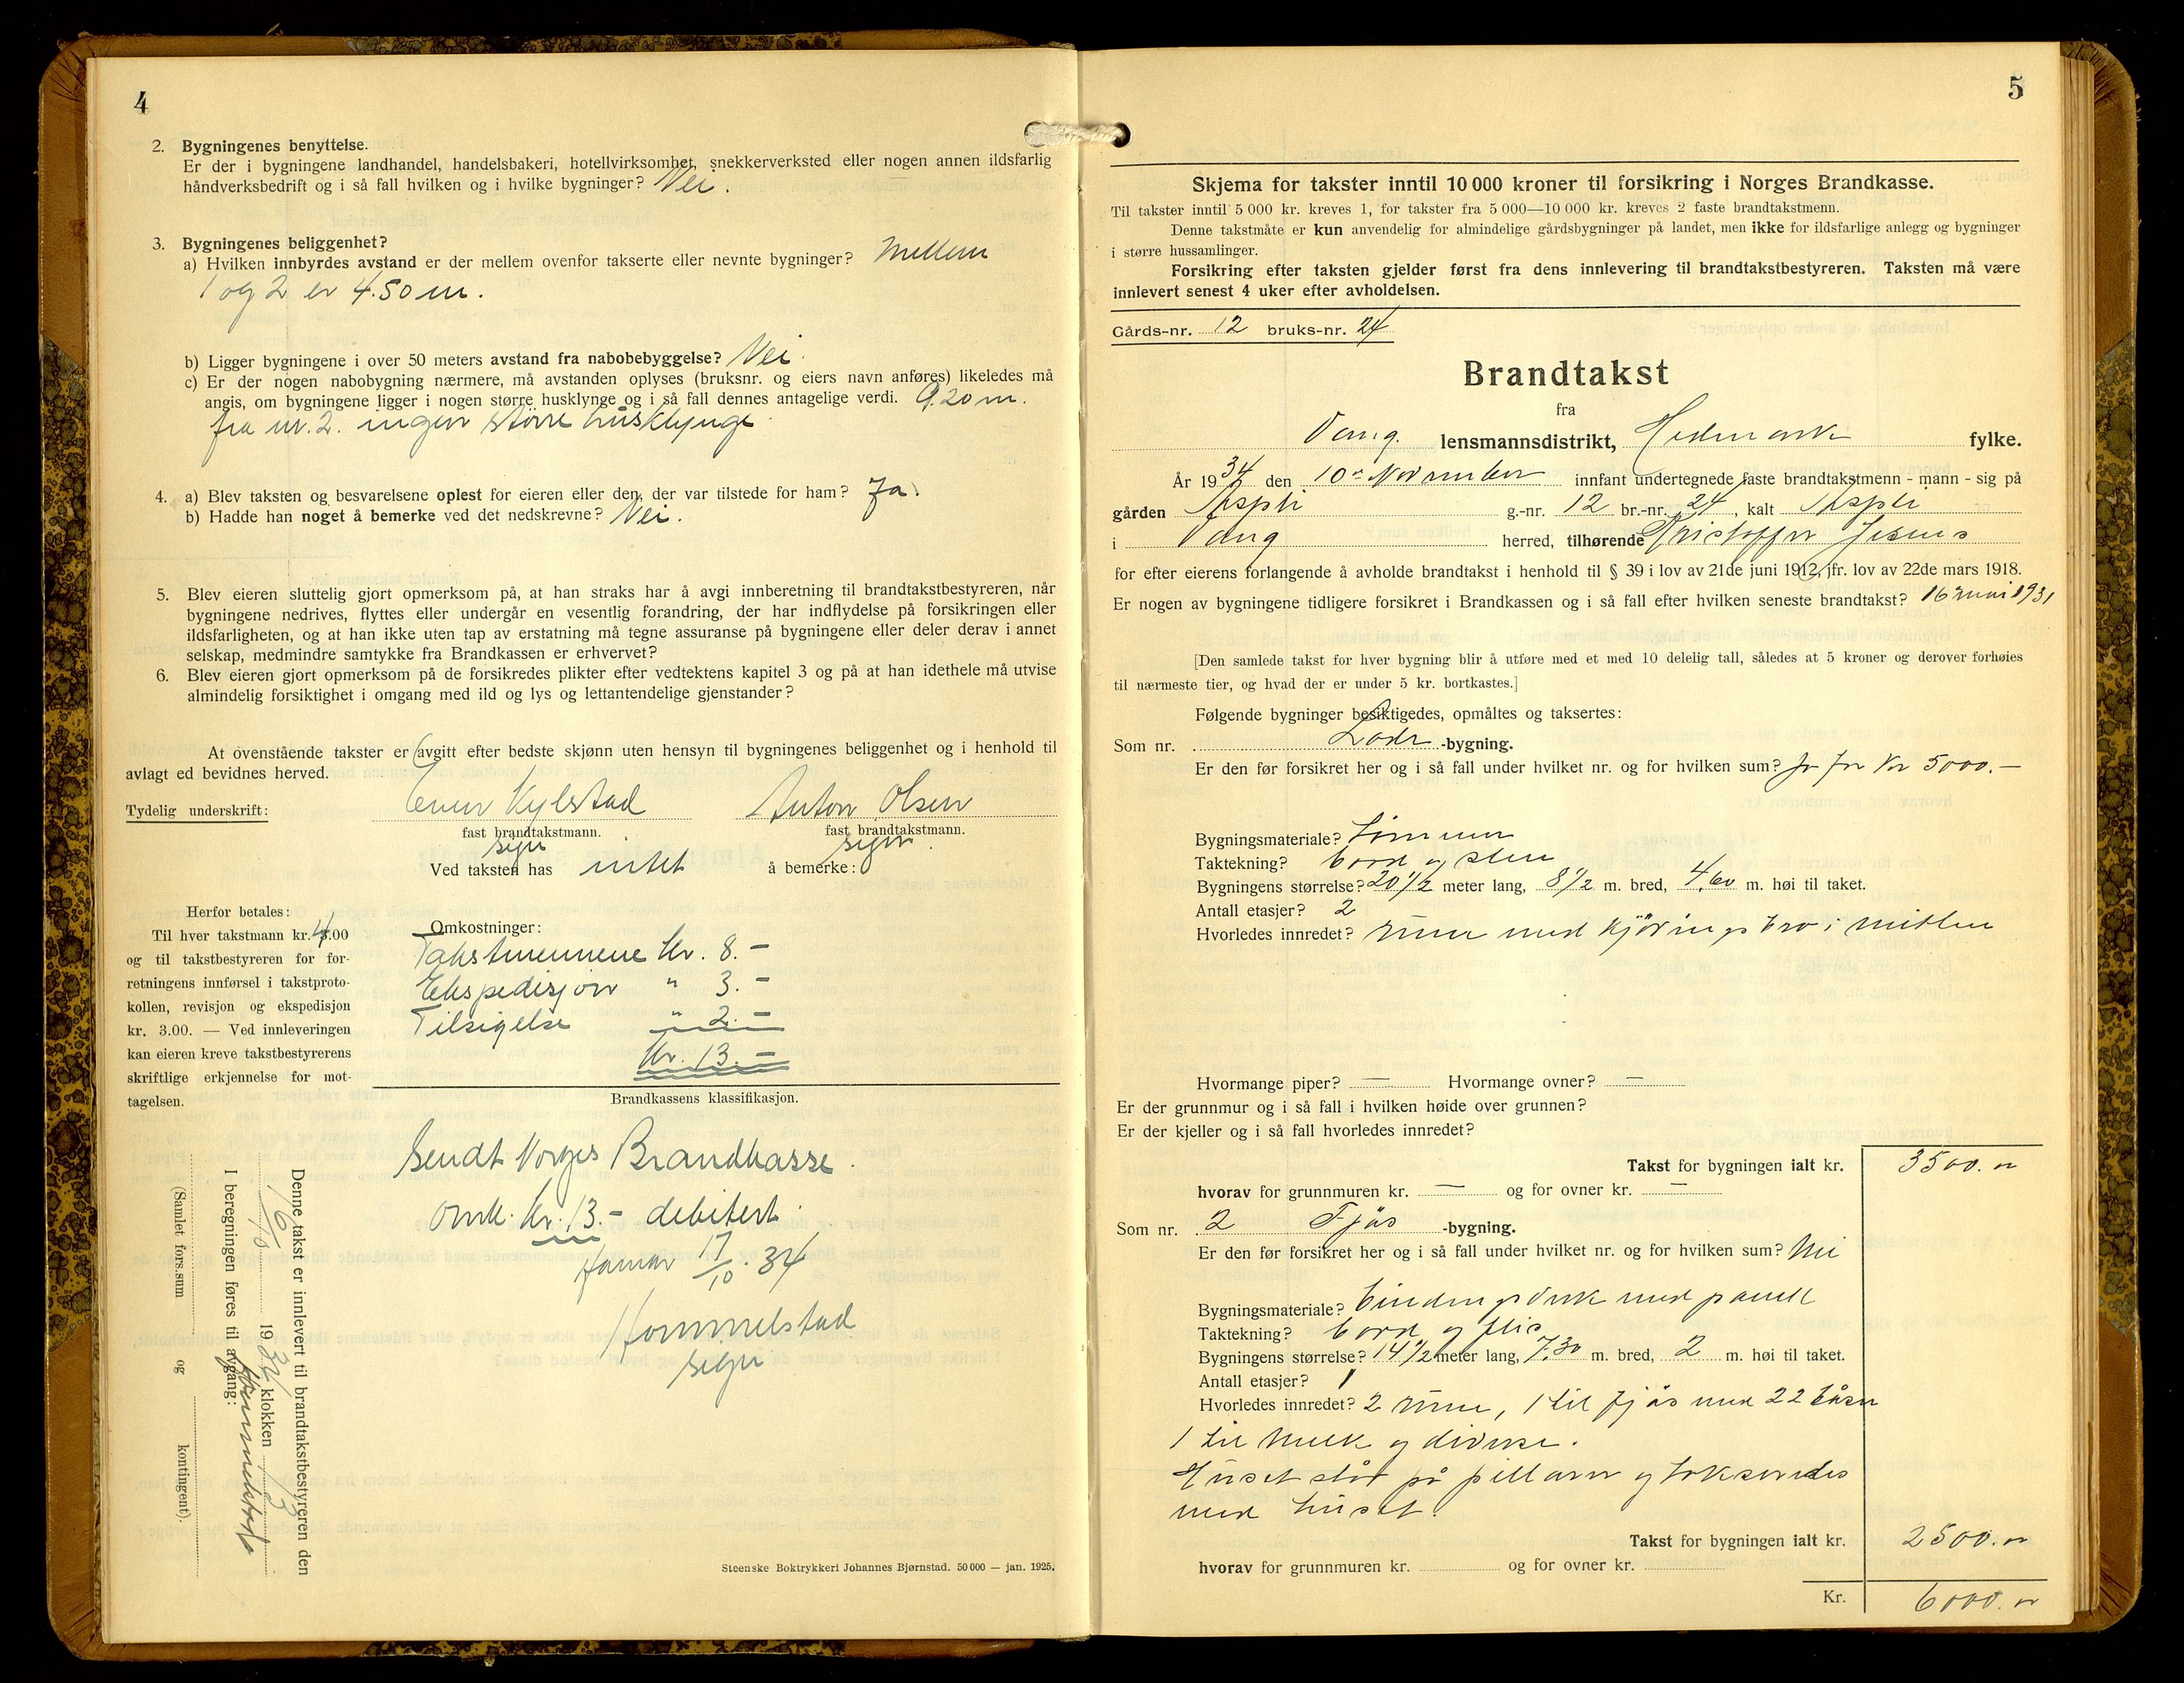 4
2. Bygningenes benyttelse.
Er der i bygningene landhandel, handelsbakeri, hotellvirksomhet, snekkerverksted eller nogen annen ildsfarlig
håndverksbedrift og i så fall hvilken og i hvilke bygninger? Nei.
3. Bygningenes beliggenhet?
a) Hvilken innbyrdes avstand er der mellem ovenfor takserte eller nevnte bygninger? Mellem
1 og 2 er 4.50 m.
b) Ligger bygningene i over 50 meters avstand fra nabobebyggelse? Nei.
c) Er der nogen nabobygning nærmere, må avstanden oplyses (bruksnr. og eiers navn anføres) likeledes må
angis, om bygningene ligger i nogen større husklynge og i så fall dennes antagelige verdi. 9.20 m.
fra nr. 2. ingen större husklynge
4. a) Blev taksten og besvarelsene oplest for eieren eller den, der var tilstede for ham? Ja.
b) Hadde han noget å bemerke ved det nedskrevne? Nei.
5. Blev eieren sluttelig gjort opmerksom på, at han straks har å avgi innberetning til brandtakstbestyreren, når
bygningene nedrives, flyttes eller undergår en vesentlig forandring, der har indflydelse på forsikringen eller
ildsfarligheten, og at han ikke uten tap av erstatning må tegne assuranse på bygningene eller deler derav i annet
selskap, medmindre samtykke fra Brandkassen er erhvervet?
6. Blev eieren gjort opmerksom på de forsikredes plikter efter vedtektens kapitel 3 og på at han idethele må utvise
almindelig forsiktighet i omgang med ild og lys og lettantendelige gjenstander?
At ovenstående takster er avgitt efter bedste skjønn uten hensyn til bygningenes beliggenhet og i henhold til
avlagt ed bevidnes herved.
Tydelig underskrift: Even Kylstad Anton Olsen
fast brandtakstmann. fast brandtakstmann.
sign sign.
Ved taksten has intet å bemerke:
Herfor betales:
Til hver takstmann kr. 4.00
og til takstbestyreren for for-
retningens innførsel i takstproto-
kollen, revisjon og ekspedisjon
kr. 3.00. — Ved innleveringen
kan eieren kreve takstbestyrerens
skriftlige erkjennelse for mot-
tagelsen.
Omkostninger:
Takstmennene kr. 8.-
Ekspedisjon " 3.-
Tilsigelse " 2.-
Kr. 13.-
Brandkassens klassifikasjon.
Sendt Norges Brandkasse.
Omk. kr. 13.- debitert.
Hamar 17/10. 34
Hommelstad
sign
Denne takst er innlevert til brandtakstbestyreren den
16/10 1934 klokken 13
I beregningen føres til avgang:
Hommelstad
(Samlet fors.sum og kontingent).
Steenske Boktrykkeri Johannes Bjørnstad. 50 000 — jan. 1925.
5
Skjema for takster inntil 10 000 kroner til forsikring i Norges Brandkasse.
Til takster inntil 5 000 kr. kreves 1, for takster fra 5 000—10 000 kr. kreves 2 faste brandtakstmenn.
Denne takstmåte er kun anvendelig for almindelige gårdsbygninger på landet, men ikke for ildsfarlige anlegg og bygninger
i større hussamlinger.
Forsikring efter taksten gjelder først fra dens innlevering til brandtakstbestyreren. Taksten må være
innlevert senest 4 uker efter avholdelsen.
Gårds-nr. 12 bruks-nr. 24
Brandtakst
fra
Vang. lensmannsdistrikt, Hedmark fylke.
År 1934 den 10de November innfant undertegnede faste brandtakstmenn - mann - sig på
gården Aspli g.-nr. 12 br.-nr. 24, kalt Aspli
i Vang herred, tilhørende Kristoffer Jesnes
for efter eierens forlangende å avholde brandtakst i henhold til § 39 i lov av 21de juni 1912, jfr. lov av 22de mars 1918.
Er nogen av bygningene tidligere forsikret i Brandkassen og i så fall efter hvilken seneste brandtakst? 16 mai 1931
[Den samlede takst for hver bygning blir å utføre med et med 10 delelig tall, således at 5 kroner og derover forhøies
til nærmeste tier, og hvad der er under 5 kr. bortkastes.]
Følgende bygninger besiktigedes, opmåltes og taksertes:
Som nr. Låve -bygning.
Er den før forsikret her og i så fall under hvilket nr. og for hvilken sum? Ja for kr 5000.—
Bygningsmateriale? tömmer
Taktekning? bord og sten
Bygningens størrelse? 20 1/2 meter lang, 8 1/2 m. bred, 4.60 m. høi til taket.
Antall etasjer? 2
Hvorledes innredet? rum med kjörings bro i midten
Hvormange piper? — Hvormange ovner? —
Er der grunnmur og i så fall i hvilken høide over grunnen?
Er der kjeller og i så fall hvorledes innredet?
Takst for bygningen ialt kr. 3500.00
hvorav for grunnmuren kr. — og for ovner kr. —
Som nr. 2 Fjös -bygning.
Er den før forsikret her og i så fall under hvilket nr. og for hvilken sum? Nei
Bygningsmateriale? bindingsverk med panell
Taktekning? bord og flis
Bygningens størrelse? 14 1/2 meter lang, 7.30 m. bred, 2 m. høi til taket.
Antall etasjer? 1
Hvorledes innredet? 2 rum, 1 til fjös med 22 båser
1 til melk og diverse.
Huset står på pillarer og takseredes
med huset.
Takst for bygningen ialt kr. 2500.00
hvorav for grunnmuren kr. og for ovner kr.
Kr. 6000.00